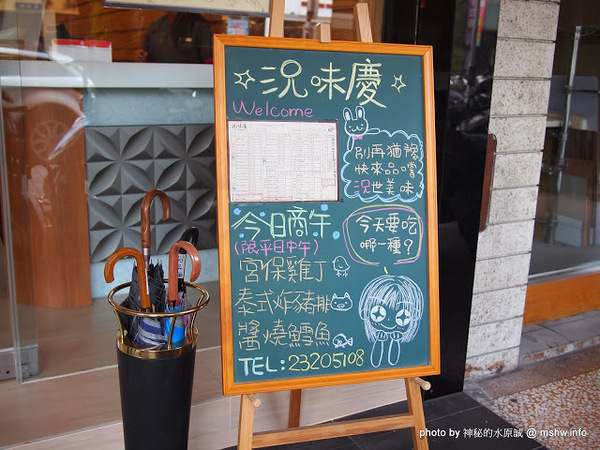 況味慶
Welcome
別再猶豫
快來品嚐
況世美味
今日商午
(限平日中午)
今天要吃
哪一種?
宮保雞丁
泰式炸豬排
醬燒鱈魚
TEL:23205108
photo by 神秘的水原誠 @ mshw.info